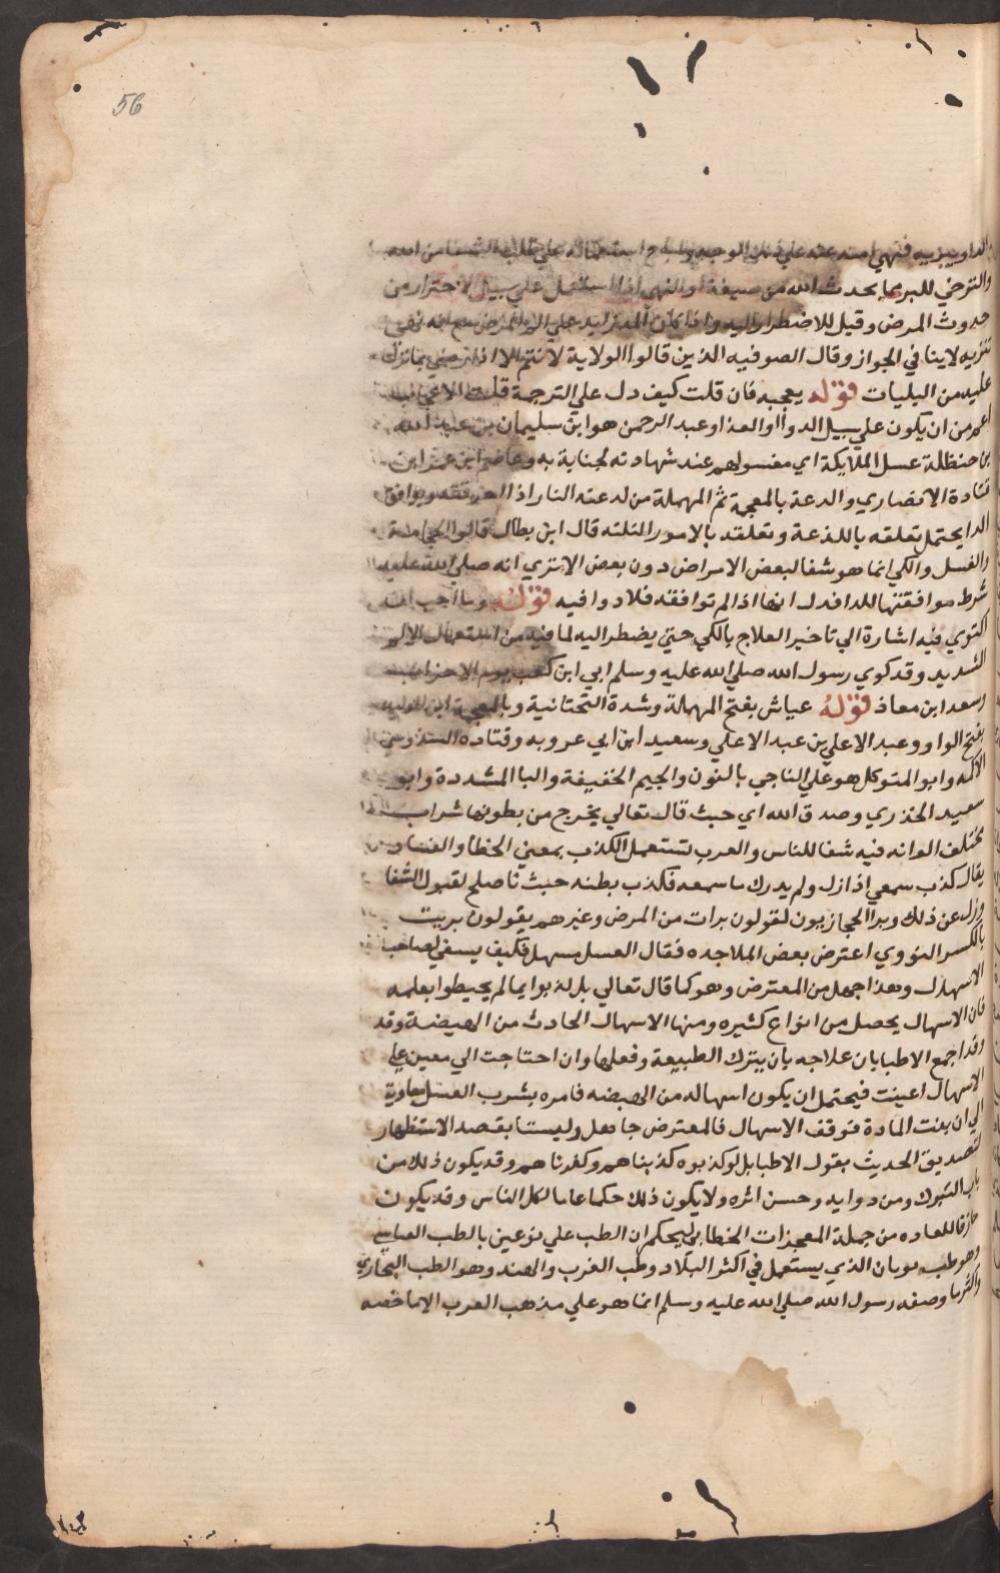 56
الداويبزيه فنهي امته عنه علي ذلك الوجه استعماله علي طلب الشفا من الله
والترخي للبر بما يحدث الله من صيغة او النهي اذا استعمل علي سبيل الاحترار من
حدوث المرض وقيل للاضطرار اليه واذا كان
تنزيه لاينا في الجواز وقال الصوفيه الذين قالوا الولاية لا تتم الا اذا بما نزل
عليه من البليات قوله يعجبه فان قلت كيف دل علي الترجمة قلت
اعم من ان يكون علي سبيل الدوا او الغذا وعبد الرحمن هو ابن سليمان بن عبد الله
بن حنظلة غسل الملايكة اي مغسولهم عند شهادته لجناية به وعاصم ابن عمر ابن
قتادة الانصاري والدعة بالمعجمة ثم المهملة من لدعته النار اذا احرقته ويوافق
الدا يحتمل تعلقه باللذعة وتعلقه بالامور الثلثه قال ابن بطال قالوا الحجامة
والغسل والكي انما هو شفا لبعض الامراض دون بعض الاتري انه صلي الله عليه
شرط موافقتها للدا فدل انها اذا لم توافقه فلا دوا فيه قوله وما احب ان
اكتوي فيه اشارة الي تاخير العلاج بالكي حتي يضطر اليه لما فيه من استعمال الالم
الشديد وقد كوي رسول الله صلي الله عليه وسلم ابي ابن كعب يوم الاحزاب
وسعد ابن معاذ قوله عياش بفتح المهملة وشدة التحتانية وبالمعجمة ابن الوليد
بفتح الواو وعبد الاعلي بن عبد الاعلي وسعيد ابن ابي عروبه وقتاده السدوسي
الاكمه وابو المتوكل هو علي الناجي بالنون والجيم الخفيفة واليا المشددة وابو
سعيد الخدري وصدق الله اي حيث قال تعالي يخرج من بطونها شراب
مختلف الوانه فيه شفا للناس والعرب تستعمل الكذب بمعني الخطا والفساد
يقال كذب سمعي اذا زل ولم يدرك ما سمعه فكذب بطنه حيث ما صلح لقبول الشفا
وزل عن ذلك وبرا الحجازيون لقولون برات من المرض وغيرهم يقولون بريت
بالكسر النووي اعترض بعض الملاحده فقال العسل مسهل فكيف يسقي لصاحب
الاسهال وهذا جهل من المعترض وهو كما قال تعالي بل كذبوا بما لم يحيطوا بعلمه
فان الاسهال يحصل من انواع كثيره ومنها الاسهال الحادث من الهيضة وقد
وقد اجمع الاطبا بان علاجه بان يترك الطبيعة وفعلها وان احتاجت الي معين علي
الاسهال اعينت فيحتمل ان يكون اسهاله من الهيضه فامره بشرب العسل معاوية
الي ان بعنت المادة فوقف الاسهال فالمعترض جاهل ولستا بقصد الاستظهار
لتصديق الحديث بقول الاطبا بل لو كذبوه كذبناهم وكفرناهم وقد يكون ذلك من
باب التبرك ومن دوايه وحسن اثره ولا يكون ذلك حكما عاما لكل الناس وقد يكون
خارقا للعاده من جملة المعجزات الخطابي ليحكم ان الطب علي نوعين بالطب القياسي
وهو طب يونان الذي يستعمل في اكثر البلاد وطب العرب والهند وهو الطب التجاربي
واكثر ما وصفه رسول الله صلي الله عليه وسلم انما هو علي مذهب العرب الا ما خصه